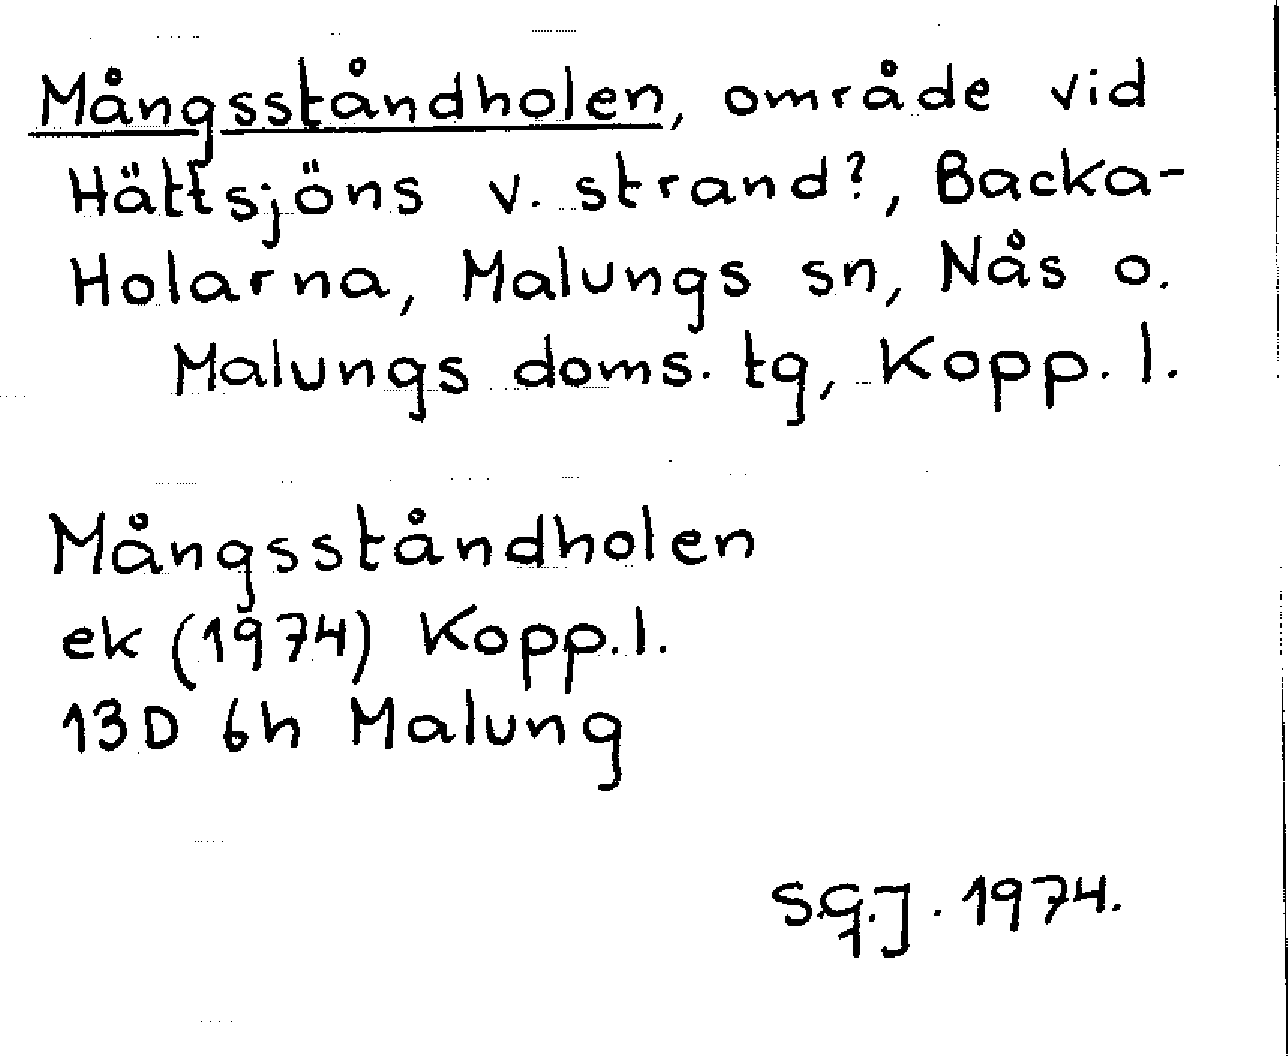 Mångsståndholen, område vid
Hättsjöns v. strand?, Backa-
Holarna, Malungs sn, Nås o.
Malungs doms. tg, Kopp. l.
Mångsståndholen
ek (1974) Kopp.l.
13D 6h Malung
S.G.J. 1974.